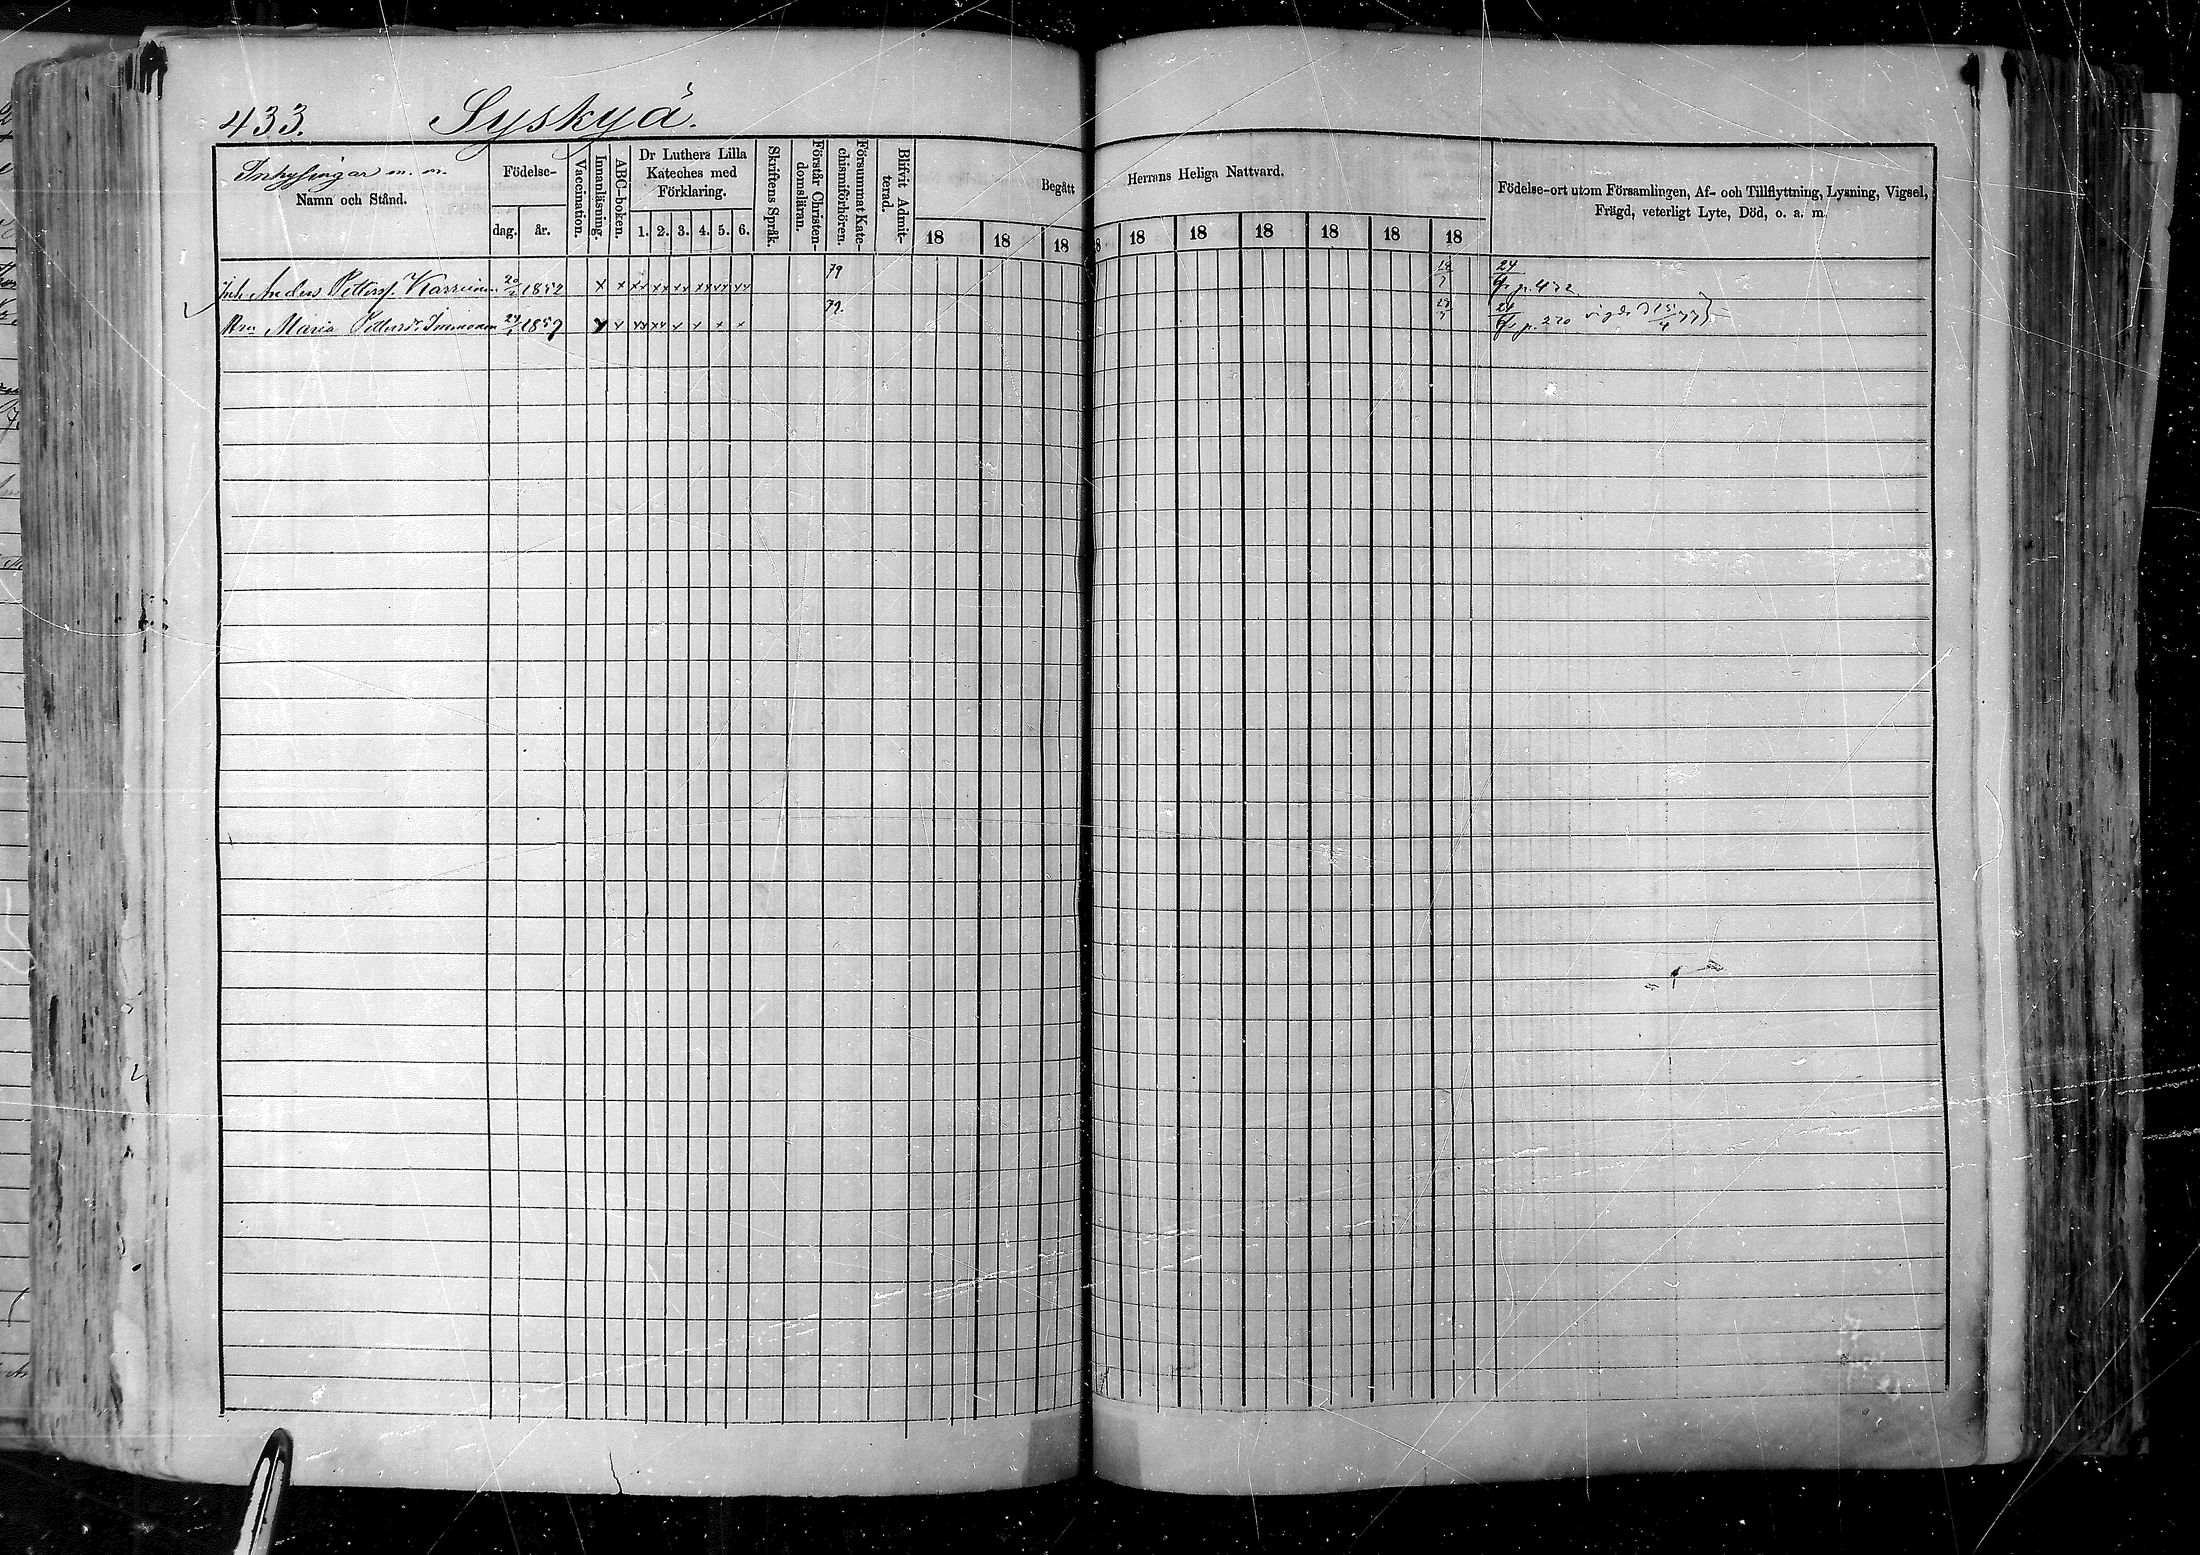 433. Syskyä.
Inhysingar m. m.
Namn och Stånd.
Födelse-
dag. år.
Vaccination.
Innanläsning.
ABC-boken.
Dr Luthers Lilla
Kateches med
Förklaring.
1. 2. 3. 4. 5. 6.
Skriftens Språk.
Förstår Christen-
domsläran.
Försummat Kate-
chismiförhören.
Blifvit Admit-
terad.
Begått Herrans Heliga Nattvard.
18 18 18 18 18 18 18 18 18
Födelse-ort utom Församlingen, Af- och Tillflyttning, Lysning, Vigsel,
Frägd, veterligt Lyte, Död, o. a. m.
Inh Anders Petterss. Karvinen 1852 x x xx xx xx xx xx xx 79 p. 432
Hru Maria Pettersdr Immonen 1857 x x xx xx x x x x 79. p. 220 vigde 15/4 77